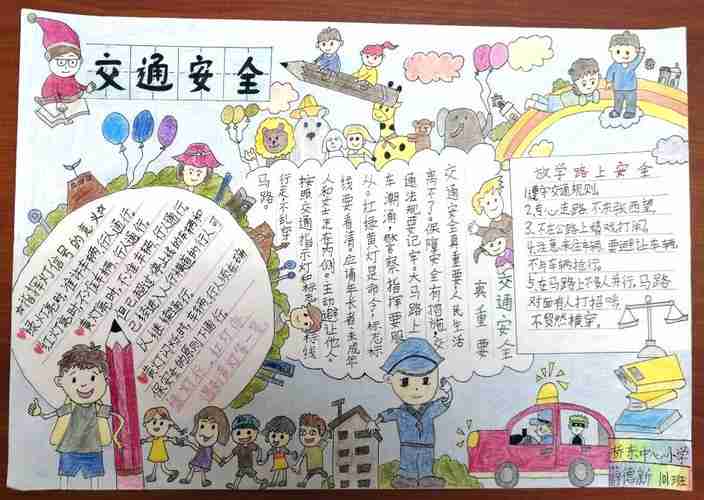 交通安全
放学路上安全
1.遵守交通规则
2.专心走路,不东张西望
3.不在公路上嬉戏打闹
4.注意来往车辆,要避让车辆
不与车辆抢行。
5.在马路上不多人并行,马路
对面有人打招呼
不贸然横穿。
交通安全
真重要
交通安全真重要,人民生活
离不了。保障安全有措施,交
通法规要记牢。大马路上
车潮涌,警察指挥要服
从。红绿黄灯是命令,标志标
线要看清。应请年长者未成年
人和女士走在内侧。主动避让他人
按照交通指示灯
行走,不乱穿
马路。
指挥灯信号的意义
绿灯亮时,准许车辆、行人通行。
红灯亮时,不准车辆、行人通行。
黄灯亮时,不准车辆、行人通行,
但已越过停止线的车辆和
已经进入人行横道的行人,可
以继续通行。
黄灯闪烁时,车辆、行人须在确
保安全的原则下通行。
桥东中心小学
101班